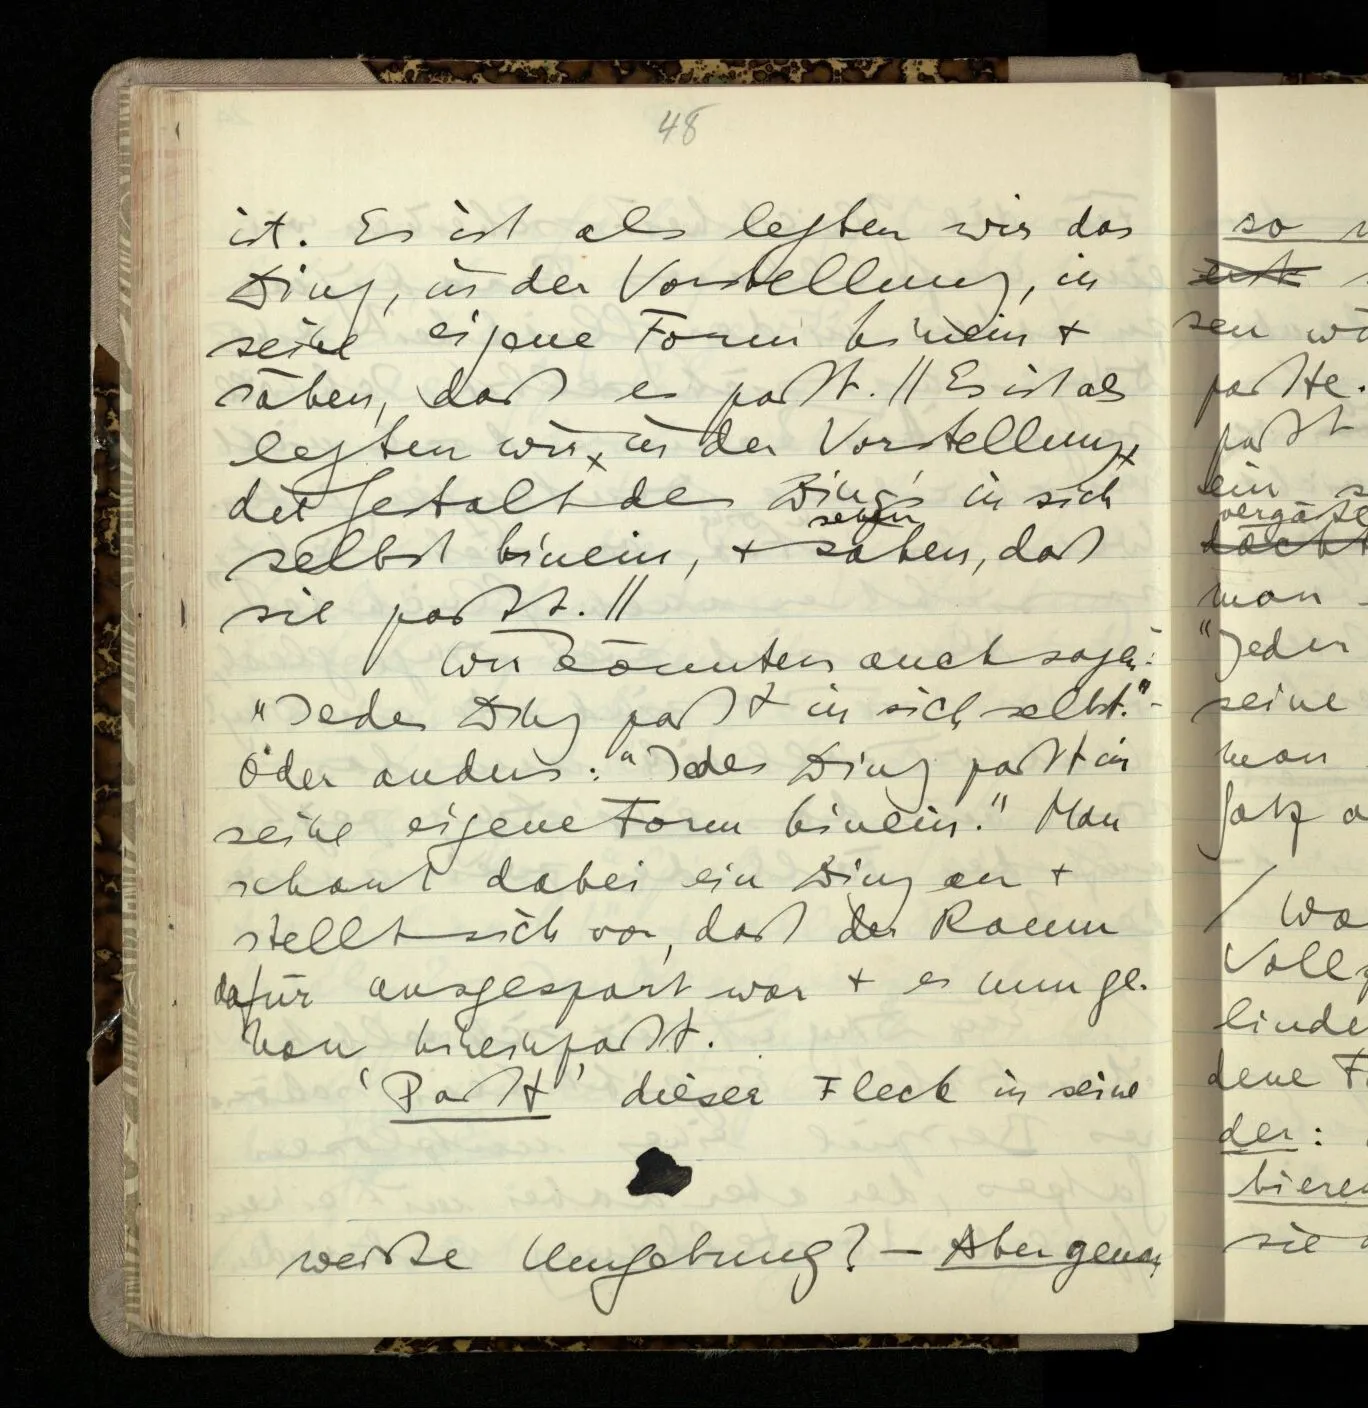 48
ist. Es ist als legten wir das
Ding, in der Vorstellung, in
seine eigene Form hinein +
sähen, daß es paßt. // Es ist als
legten wir, in der Vorstellung,
die Gestalt des Dings in sich
sehen
selbst hinein, + sähen, daß
sie paßt. //
Wir könnten auch sagen:
"Jedes Ding paßt in sich selbst." -
Oder anders: "Jedes Ding paßt in
seine eigene Form hinein." Man
schaut dabei ein Ding an +
stellt sich vor, daß der Raum
dafür ausgespart war + es nun ge-
nau hineinpaßt.
'Paßt' dieser Fleck in seine
weiße Umgebung? — Aber genau
so
sen
paßte.
paßt
ein
vergäße
man
"Jeder
seine
man
Satz
/
Voll
linde
dene
der:
bieren
sie